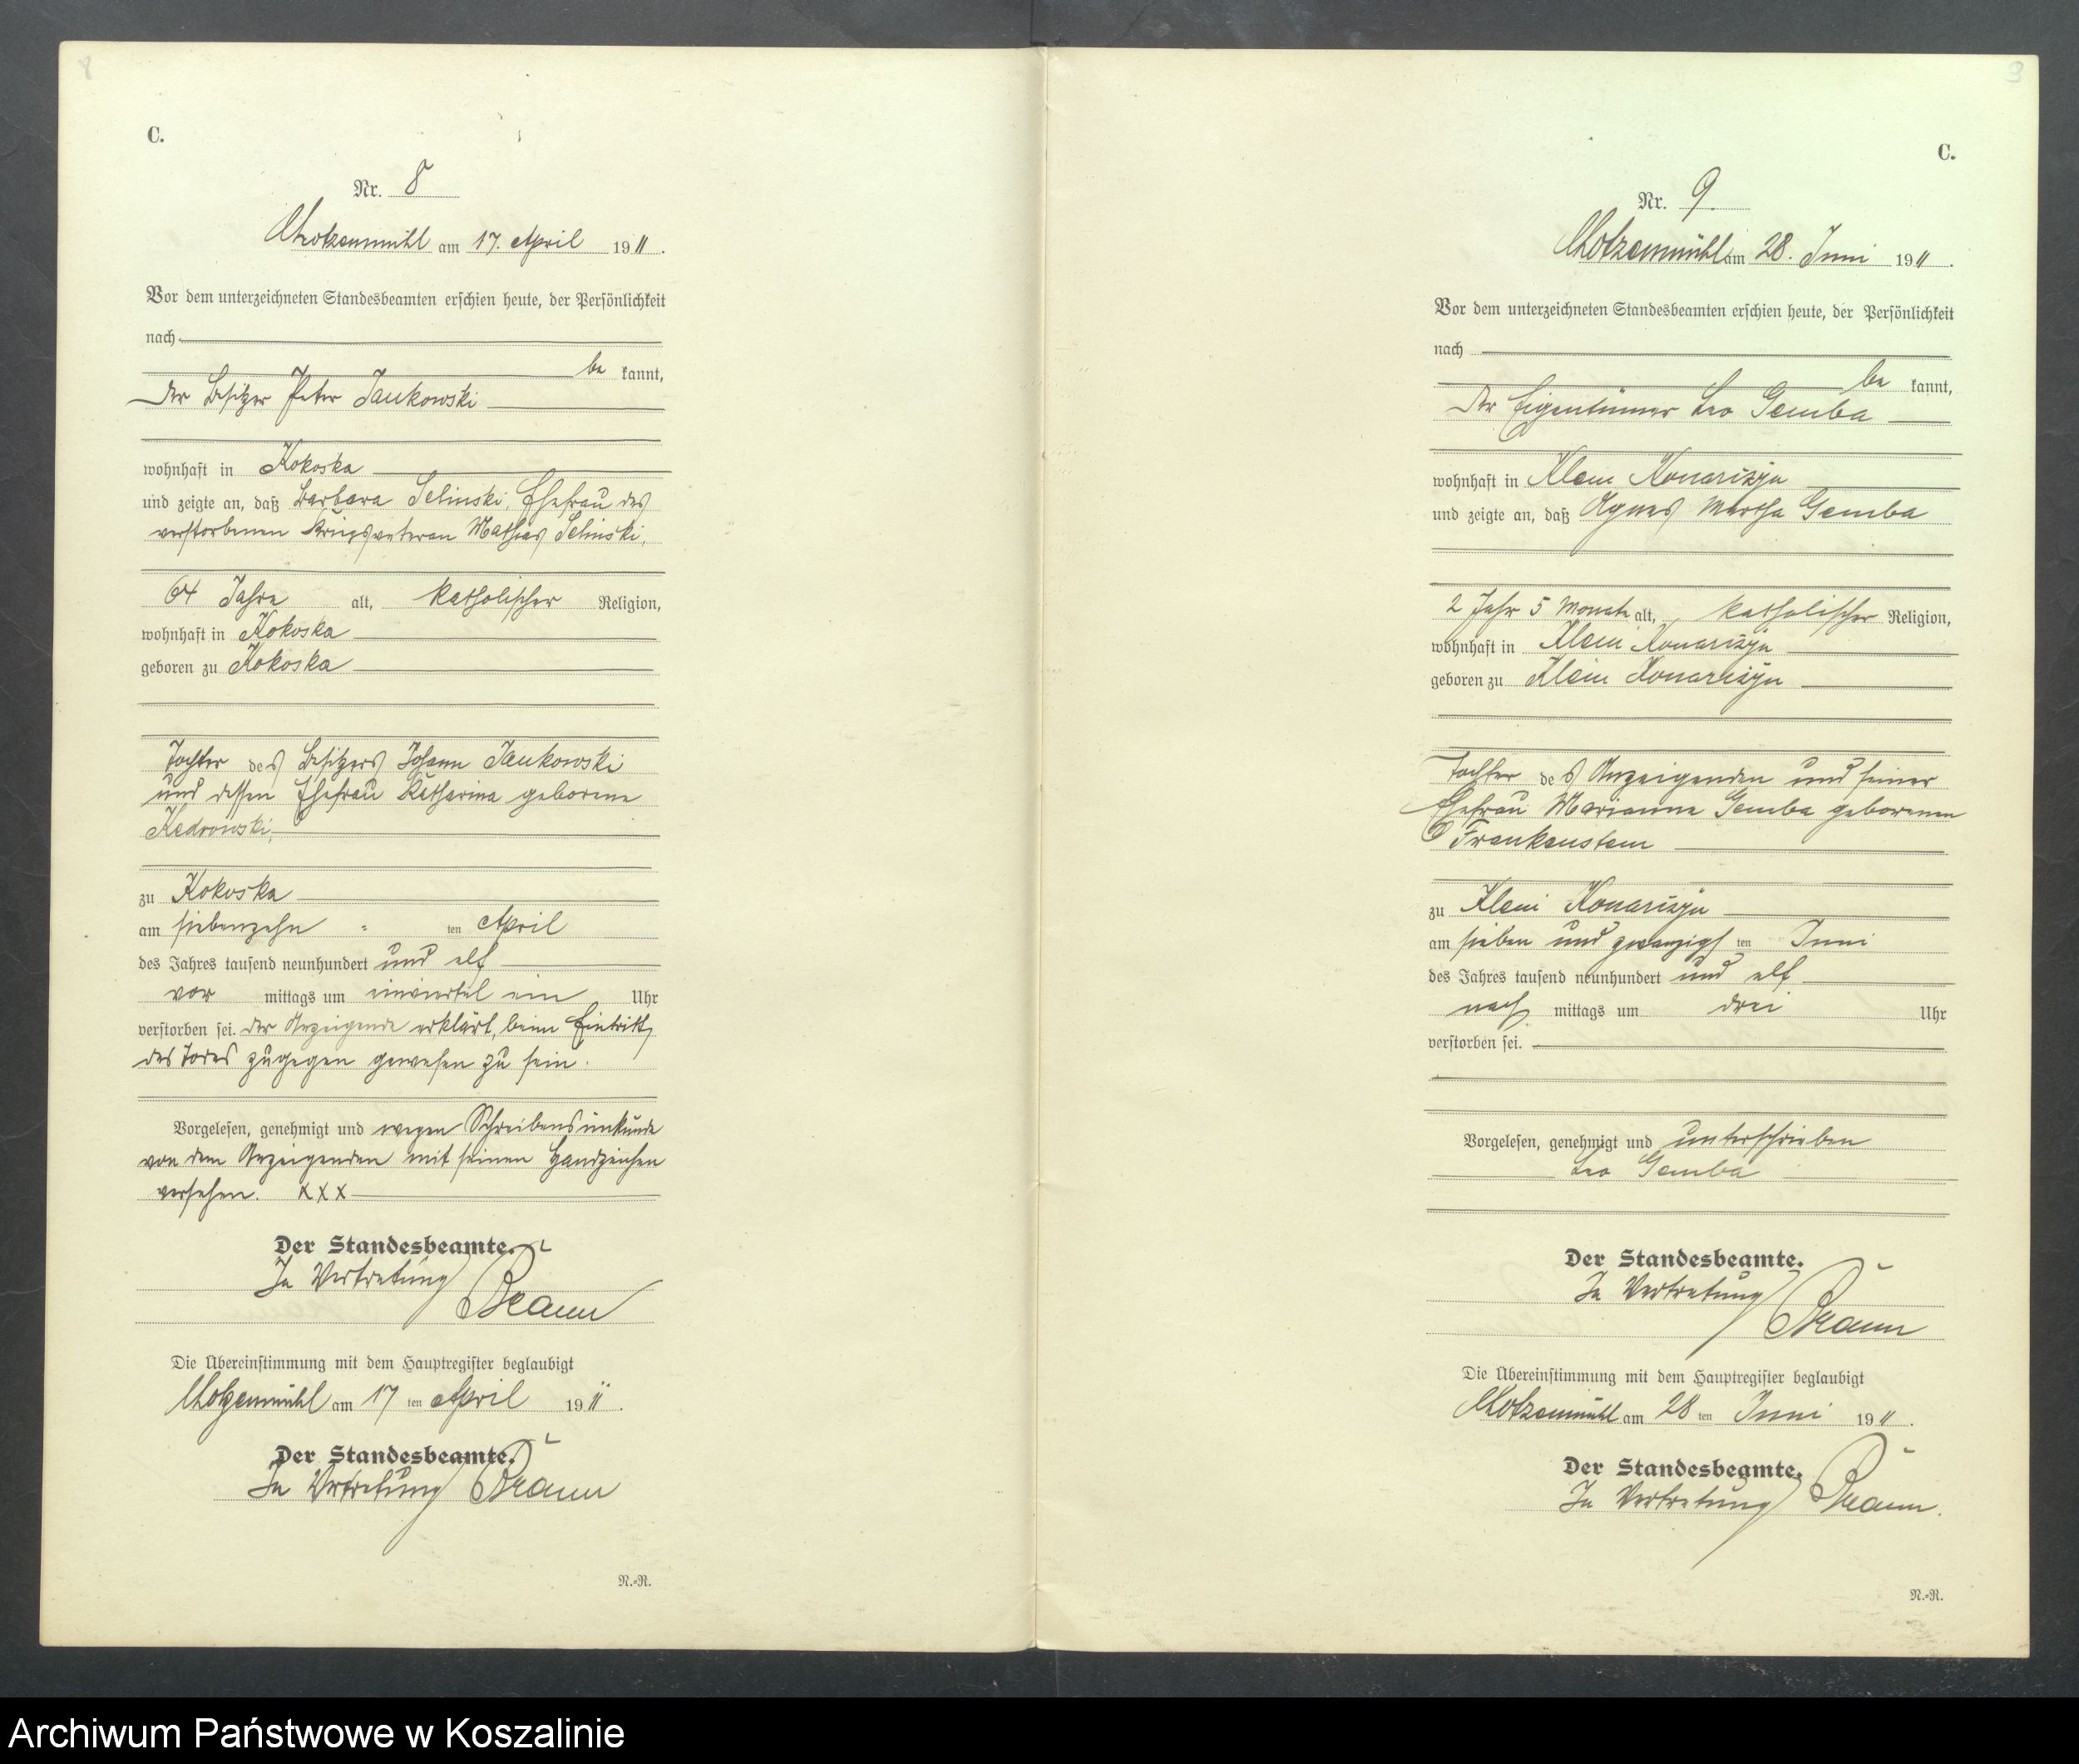 8
C.
Nr. 8
Chotzenmühl am 17. April 1911.
Vor dem unterzeichneten Standesbeamten erschien heute, der Persönlichkeit
nach
be kannt,
der Besitzer Peter Jankowski
wohnhaft in Kokoska
und zeigte an, daß Barbara Selinski, Ehefrau des
verstorbenen Kriegsveteran Mathias Selinski,
64 Jahre alt, katholischer Religion,
wohnhaft in Kokoska
geboren zu Kokoska
Tochter des Besitzers Johann Jankowski
und dessen Ehefrau Katharina geborene
Kedrowski,
zu Kokoska
am siebenzehn ten April
des Jahres tausend neunhundert und elf
vor mittags um einviertel ein Uhr
verstorben sei. Der Anzeigende erklärt, beim Eintritt
des Todes zugegen gewesen zu sein.
Vorgelesen, genehmigt und wegen Schreibensunkunde
von dem Anzeigenden mit seinen Handzeichen
versehen. XXX
Der Standesbeamte.
In Vertretung
Braun
Die Übereinstimmung mit dem Hauptregister beglaubigt
Chotzenmühl am 17 ten April 1911.
Der Standesbeamte.
In Vertretung Braun
N.-R.
C.
Nr. 9.
Chotzenmühl am 28. Juni 1911.
Vor dem unterzeichneten Standesbeamten erschien heute, der Persönlichkeit
nach
be kannt,
der Eigentümer Leo Gemba
wohnhaft in Klein Konarczyn
und zeigte an, daß Agnes Martha Gemba
2 Jahr 5 Monate alt, katholischer Religion,
wohnhaft in Klein Konarczyn
geboren zu Klein Konarczyn
Tochter des Anzeigenden und seiner
Ehefrau Marianna Gemba geborenen
Frankenstein
zu Klein Konarczyn
am sieben und zwanzigs ten Juni
des Jahres tausend neunhundert und elf
nach mittags um drei Uhr
verstorben sei.
Vorgelesen, genehmigt und unterschrieben
Leo Gemba
Der Standesbeamte.
In Vertretung
Braun
Die Übereinstimmung mit dem Hauptregister beglaubigt
Chotzenmühl am 28 ten Juni 1911.
Der Standesbeamte.
In Vertretung Braun.
N.-R.
Archiwum Państwowe w Koszalinie